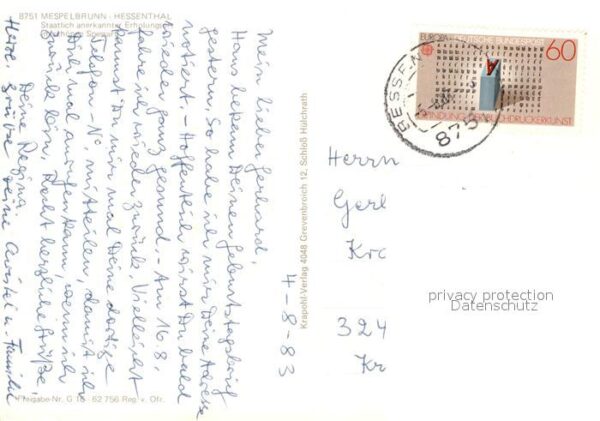 8751 MESPELBRUNN - HESSENTHAL
Staatlich anerkannter Erholungsort
4-8-83
Mein lieber Gerhard,
Hans bekam Deinen Geburtstagsbrief
gestern. So habe ich mir Deine Adresse
notiert. Hoffentlich wirst Du bald
wieder ganz gesund. - Am 16.8.
fahre ich wieder zurück. Vielleicht
kannst Du mir mal Deine dortige
Telefon-Nr mitteilen, damit ich
Dich mal anrufen kann, wenn ich
zurück bin. Recht herzliche Grüße,
Deine Regina
Herzl. Grüße Deine u. Familie
Freigabe-Nr. G 18 - 62 756 Reg. v. Ofr.
Krapohl-Verlag 4048 Grevenbroich 12, Schloß Hülchrath
EUROPA DEUTSCHE BUNDESPOST
60
ERFINDUNG DER BUCHDRUCKERKUNST
875
Herrn
Gerl
Kro
324
Kr
privacy protection
Datenschutz